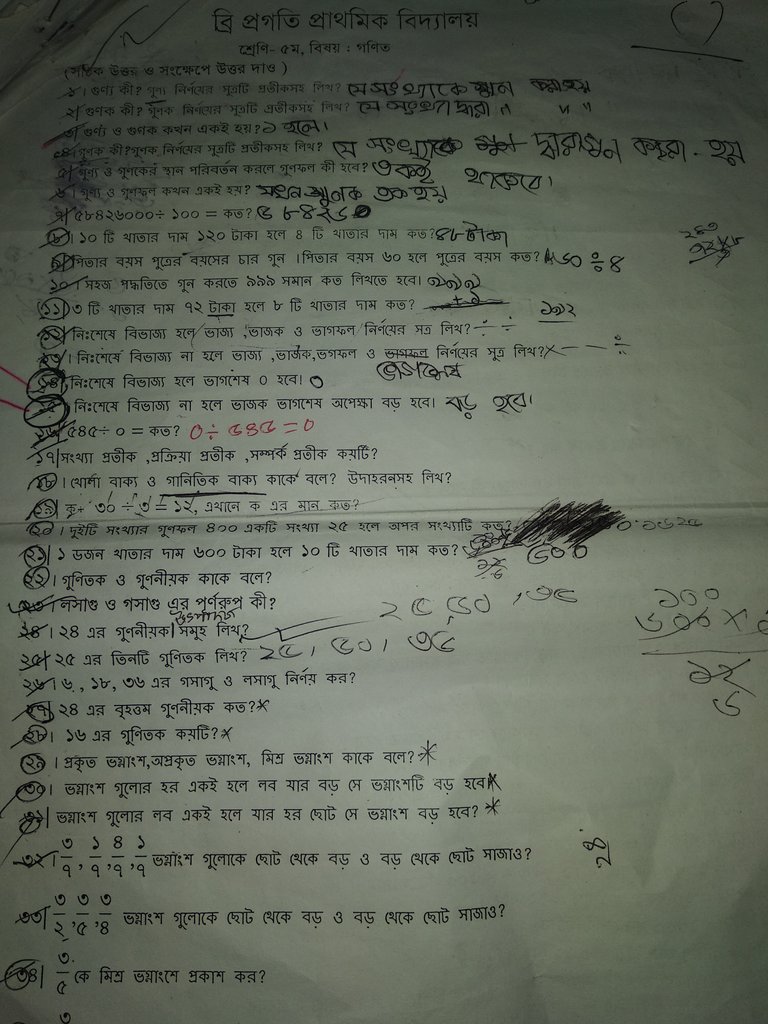 ব্রি প্রগতি প্রাথমিক বিদ্যালয়
শ্রেণি- ৫ম, বিষয় : গণিত
(সঠিক উত্তর ও সংক্ষেপে উত্তর দাও )
১। গুণ্য কী? গুন্য নির্ণয়ের সূত্রটি প্রতীকসহ লিখ? যে সংখ্যাকে গুন করা হয়
২। গুণক কী? গুণক নির্ণয়ের সূত্রটি প্রতীকসহ লিখ? যে সংখ্যা দ্বারা " " "
৩। গুণ্য ও গুণক কখন একই হয়? ১ হলে।
৪। গুণক কী?গুণক নির্ণয়ের সূত্রটি প্রতীকসহ লিখ? যে সংখ্যা দ্বারা গুন করা হয়
৫। গুন্য ও গুণকের স্থান পরিবর্তন করলে গুণফল কী হবে? একই থাকবে।
৬। গুন্য ও গুণফল কখন একই হয়? যখন গুনক এক হয়
৭। ৫৮৪২৬০০০÷ ১০০ = কত? ৫৮৪২৬০
৮। ১০ টি খাতার দাম ১২০ টাকা হলে ৪ টি খাতার দাম কত? ৪৮ টাকা
৯। পিতার বয়স পুত্রের বয়সের চার গুন । পিতার বয়স ৬০ হলে পুত্রের বয়স কত? ৬০ ÷ ৪
১০। সহজ পদ্ধতিতে গুন করতে ৯৯৯ সমান কত লিখতে হবে। ৯৯৯
+১
১১। ৩ টি খাতার দাম ৭২ টাকা হলে ৮ টি খাতার দাম কত? ১৯২
১২। নিঃশেষে বিভাজ্য হলে ভাজ্য ,ভাজক ও ভাগফল নির্ণয়ের সত্র লিখ? ÷ ÷
১৩। নিঃশেষে বিভাজ্য না হলে ভাজ্য ,ভাজক,ভগফল ও ভাগফল নির্ণয়ের সূত্র লিখ? × — — ÷
ভাগশেষ
১৪। নিঃশেষে বিভাজ্য হলে ভাগশেষ ০ হবে। ০
১৫। নিঃশেষে বিভাজ্য না হলে ভাজক ভাগশেষ অপেক্ষা বড় হবে। বড় হবে।
১৬। ৫৪৫÷ ০ = কত? ০ ÷ ৫৪৫ = ০
১৭। সংখ্যা প্রতীক ,প্রক্রিয়া প্রতীক ,সম্পর্ক প্রতীক কয়টি?
১৮। খোলা বাক্য ও গানিতিক বাক্য কাকে বলে? উদাহরনসহ লিখ?
১৯। ক+ ৩০ ÷ ৩ = ১২, এখানে ক এর মান কত?
২০। দুইটি সংখ্যার গুণফল ৪০০ একটি সংখ্যা ২৫ হলে অপর সংখ্যাটি কত? ০.০৬২৫
২১। ১ ডজন খাতার দাম ৬০০ টাকা হলে ১০ টি খাতার দাম কত? ৫০০
২২। গুণিতক ও গুণনীয়ক কাকে বলে?
২৩। লসাগু ও গসাগু এর পূর্ণরুপ কী?
২৪। ২৪ এর গুণনীয়ক সমূহ লিখ? ২৫ ৫০ , ৭৫
২৫। ২৫ এর তিনটি গুণিতক লিখ? ২৫, ৫০, ৭৫
২৬। ৬ , ১৮, ৩৬ এর গসাগু ও লসাগু নির্ণয় কর?
২৭। ২৪ এর বৃহত্তম গুণনীয়ক কত?*
২৮। ১৬ এর গুণিতক কয়টি?*
২৯। প্রকৃত ভগ্নাংশ,অপ্রকৃত ভগ্নাংশ, মিশ্র ভগ্নাংশ কাকে বলে?*
৩০। ভগ্নাংশ গুলোর হর একই হলে লব যার বড় সে ভগ্নাংশটি বড় হবে।*
৩১। ভগ্নাংশ গুলোর লব একই হলে যার হর ছোট সে ভগ্নাংশ বড় হবে?*
৩২। ৩/৭, ১/৭, ৪/৭, ১/৭ ভগ্নাংশ গুলোকে ছোট থেকে বড় ও বড় থেকে ছোট সাজাও?
৩৩। ৩/২, ৩/৫, ৩/৪ ভগ্নাংশ গুলোকে ছোট থেকে বড় ও বড় থেকে ছোট সাজাও?
৩৪। ৩/৫ কে মিশ্র ভগ্নাংশে প্রকাশ কর?
৩